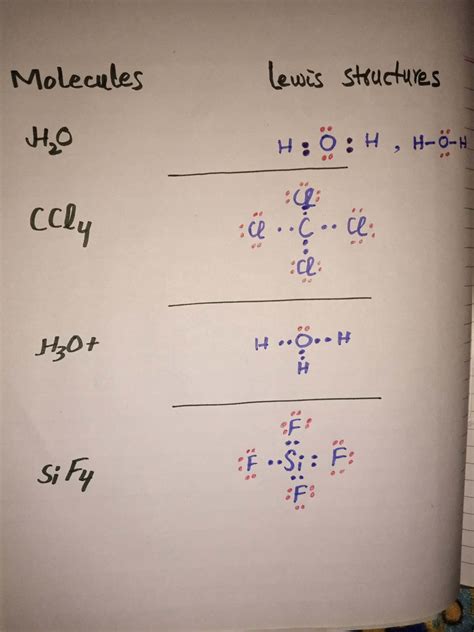 Molecules Lewis structures
H₂O H : O : H , H-O-H
CCl₄ Cl
Cl C Cl
Cl
H₃O+ H O H
H
SiF₄ F
F Si F
F